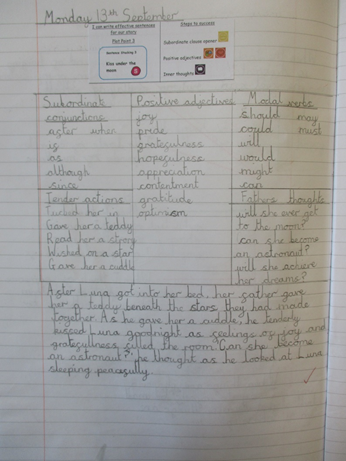 Monday 13th September
I can write effective sentences
for our story
Plot Point 3
Kiss under the
moon
Steps to success
Subordinate clause opener
Positive adjectives
Inner thoughts
Subordinate
conjunctions
after when
if
as
although
since
Positive adjectives
joy
pride
gratefulness
hopefulness
appreciation
contentment
gratitude
optimism
Modal verbs
should may
could must
will
would
might
can
Tender actions
Tucked her in
Gave her a teddy
Read her a story
Wished on a star
Gave her a cuddle
Fathers thoughts
will she ever get
to the moon?
can she become
an astronaut?
will she achieve
her dreams?
After Luna got into her bed, her father gave
her a teddy beneath the stars they had made
together. As he gave her a cuddle, he tenderly
kissed Luna goodnight as feelings of joy and
gratefullness filled the room. "Can she become
an astronaut?", he thought as he looked at Luna
sleeping peacefully.